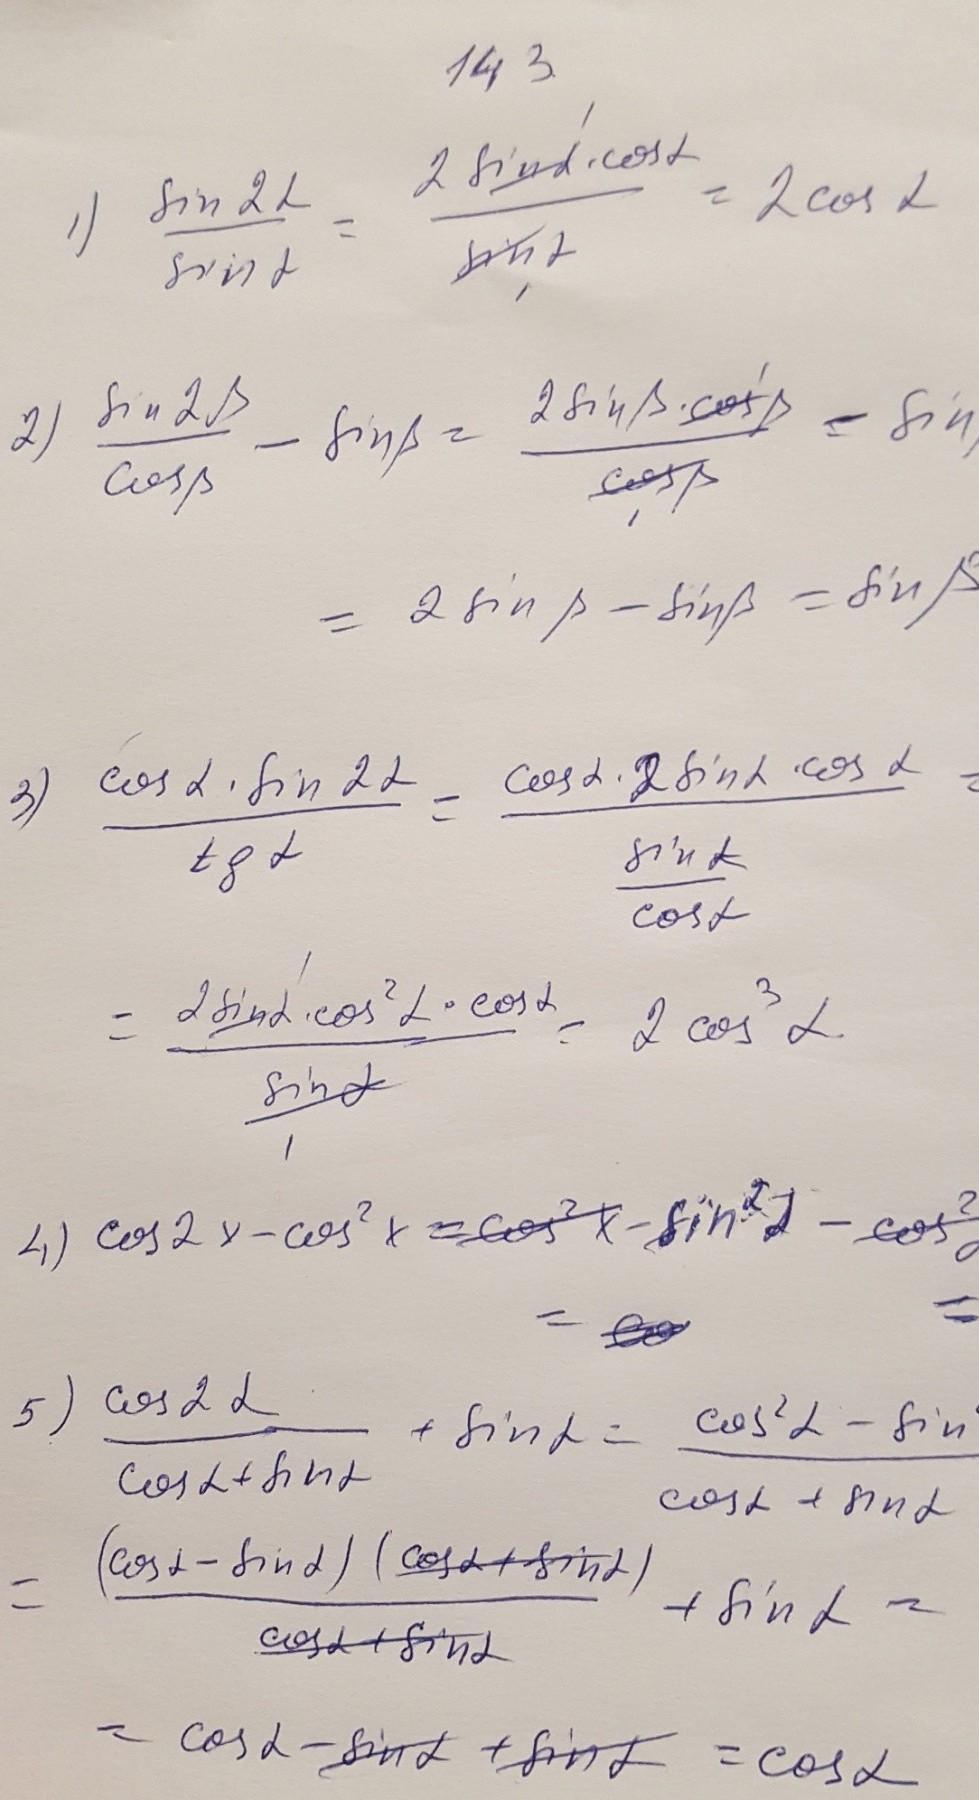 143
1) sin2α/sinα = 2sinα·cosα/sinα = 2cosα
2) sin2β/cosβ - sinβ = 2sinβ·cosβ/cosβ - sin
= 2sinβ - sinβ = sinβ
3) cosα·sin2α/tgα = cosα·2sinα·cosα/(sinα/cosα) =
= 2sinα·cos²α·cosα/sinα = 2cos³α
4) cos2x - cos²x = cos²x - sin²α - cos²
= =
5) cos2α/(cosα+sinα) + sinα = cos²α - sin²/(cosα + sinα)
= (cosα - sinα)(cosα+sinα)/(cosα+sinα) + sinα =
= cosα - sinα + sinα = cosα